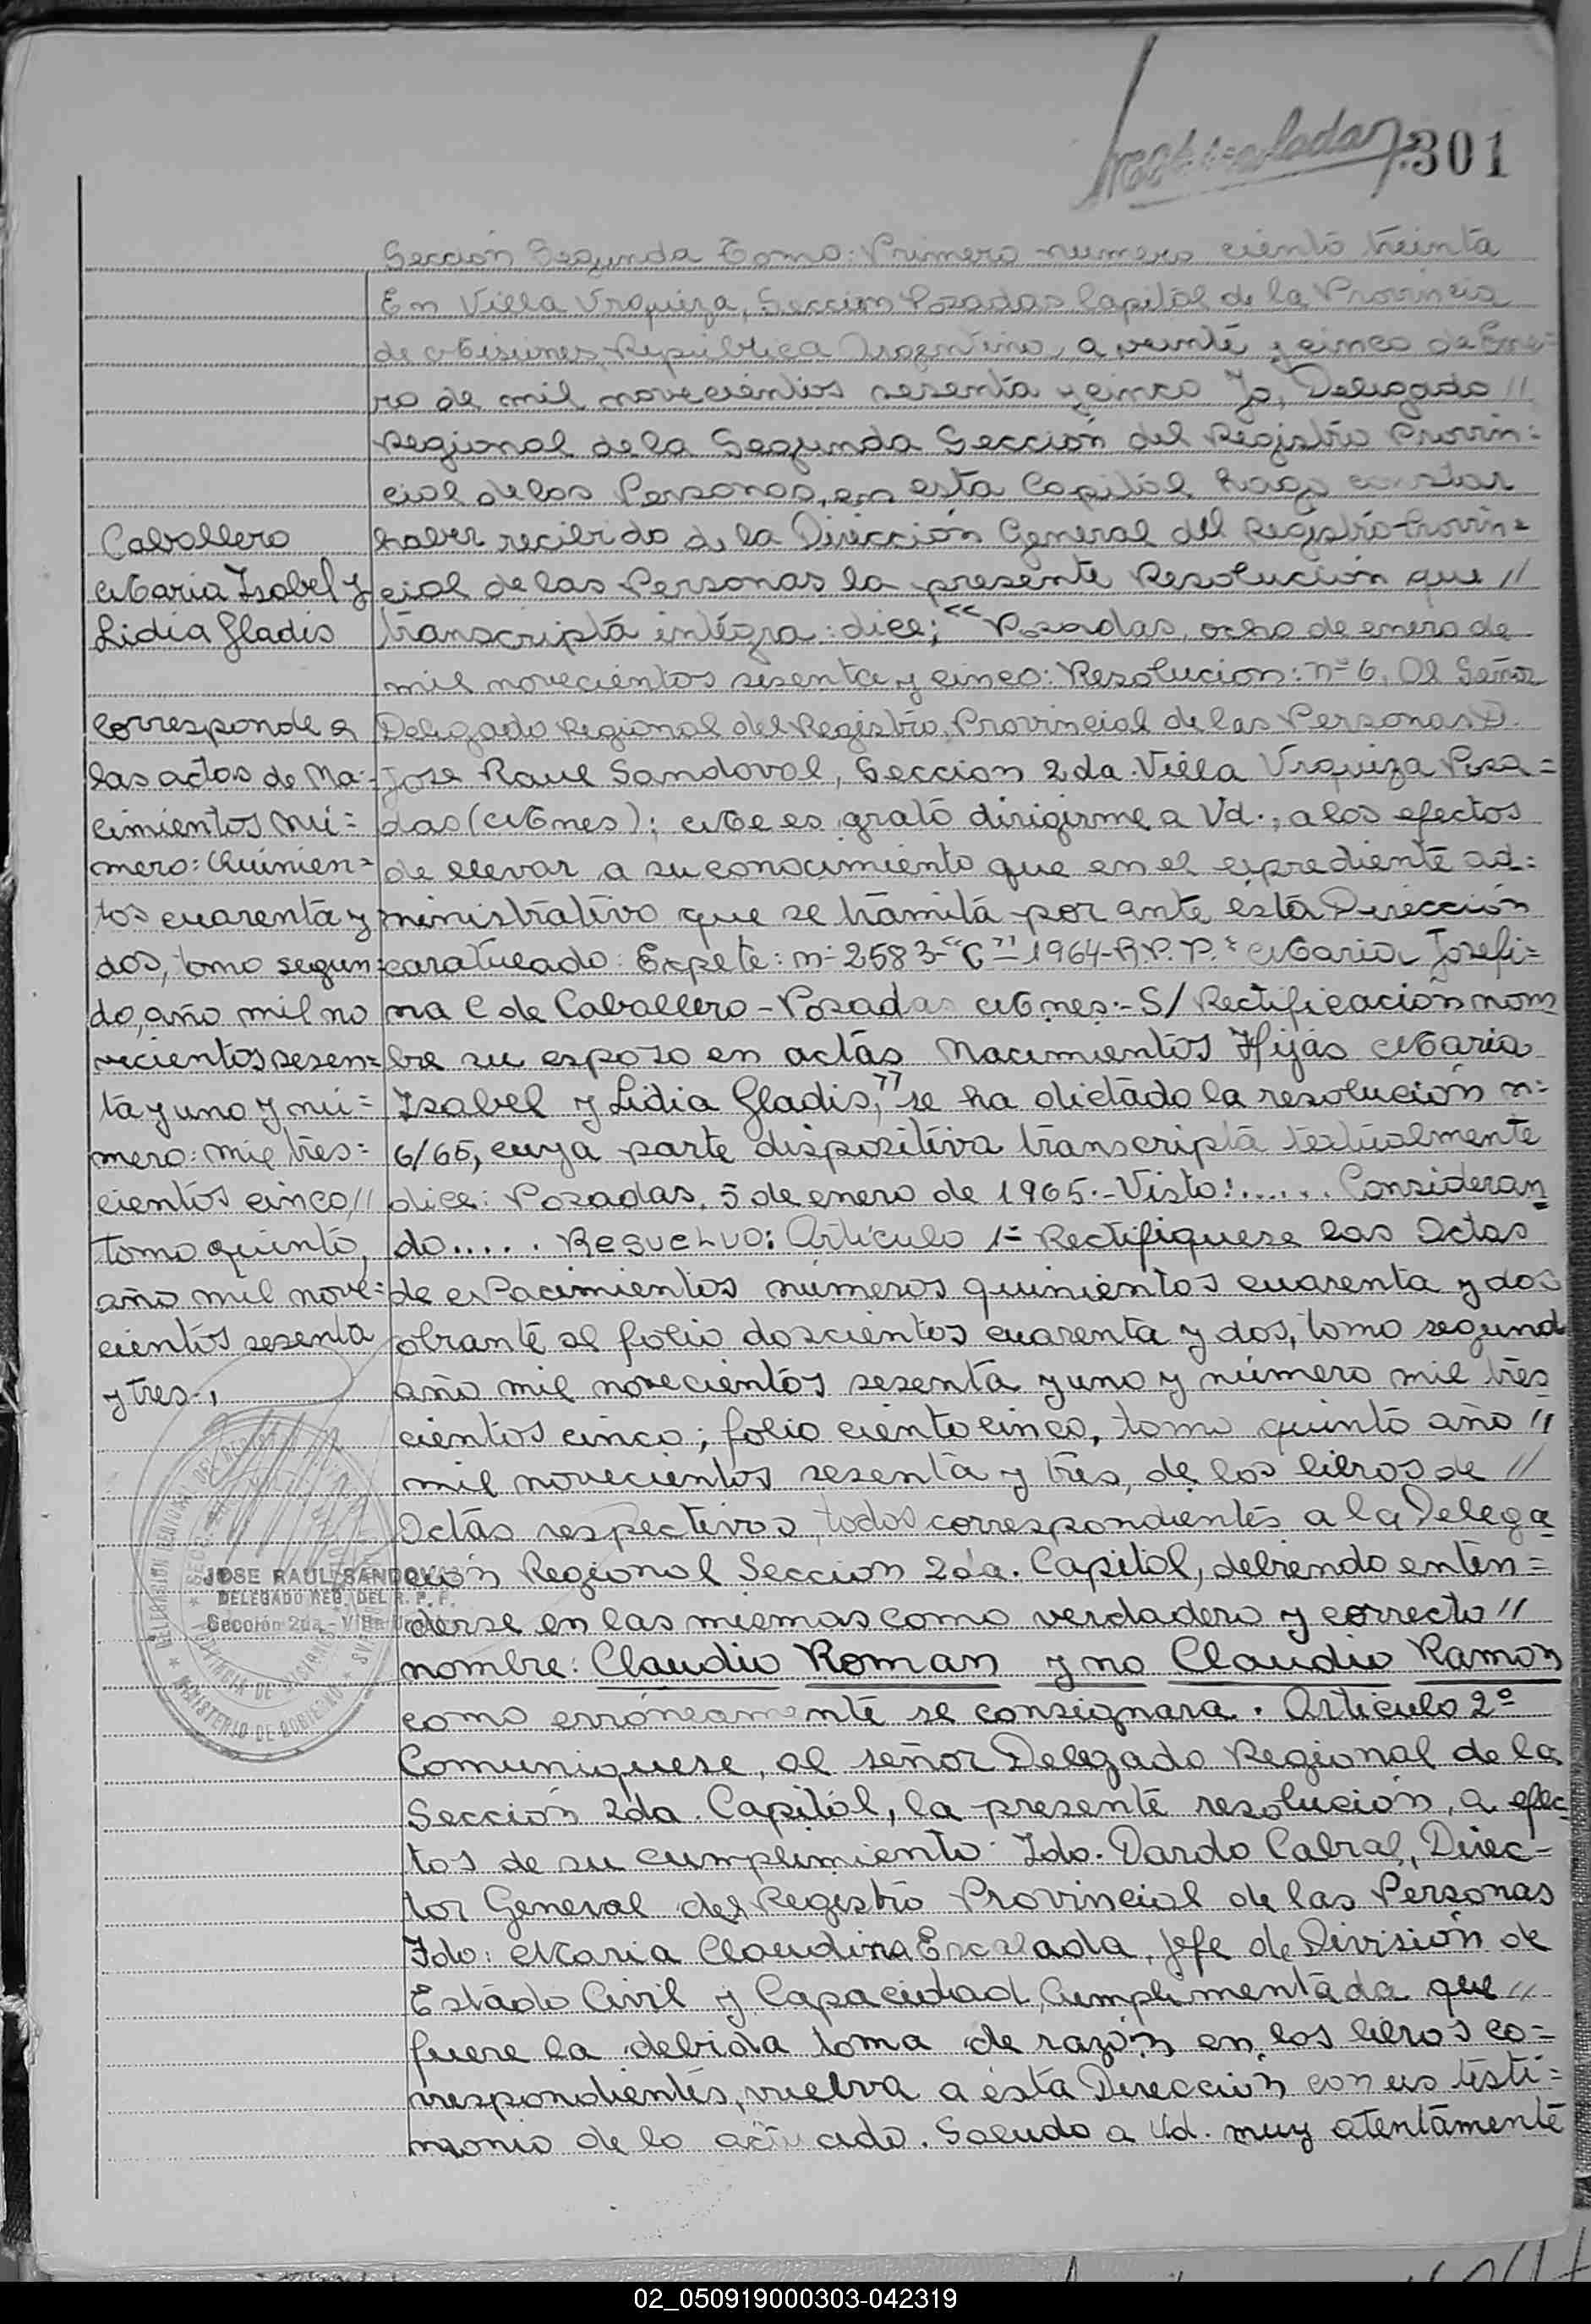 301
Sección Segunda Tomo: Primero numero ciento treinta
En Villa Urquiza, Seccion Posadas Capital de la Provincia
de Misiones, Republica Argentina, a veinte y cinco de Ene=
ro de mil novecientos sesenta y cinco Yo, Delegado //
Regional de la Segunda Sección del Registro Provin=
cial de las Personas, en esta Capital hago constar
haber recibido de la Dirección General del Registro Provin=
cial de las Personas la presente Resolución que //
transcripta intégra: dice; "Posadas, ocho de enero de
mil novecientos sesenta y cinco: Resolucion: nº 6. Al Señor
Delegado Regional del Registro Provincial de las Personas D.
Jose Raul Sandoval, Seccion 2da. Villa Urquiza Posa=
das (Mnes); Me es grato dirigirme a Vd., a los efectos
de llevar a su conocimiento que en el expediente ad=
ministrativo que se tramita por ante ésta Dirección
caratulado: Expete: n- 2583-"C"-1964-R.P.P." Maria Josefi=
na C de Caballero - Posadas Mnes:- S/ Rectificación nom
bre su esposo en actas Nacimientos Hijas Maria
Isabel y Lidia Gladis," se ha dictado la resolución n=
6/65, cuya parte dispositiva transcripta textualmente
dice: Posadas, 5 de enero de 1965.- Visto:...... Consideran
do..... Resuelvo: Artículo 1= Rectifiquese las Actas
de Nacimientos números quinientos cuarenta y dos
obrante al folio doscientos cuarenta y dos, tomo segund
año mil novecientos sesenta y uno y número mil tres
cientos cinco; folio ciento cinco, tomo quinto año //
mil novecientos sesenta y tres, de los libros de //
Actas respectivos, todos correspondientes a la Delega
ción Regional Seccion 2da. Capital, debiendo enten=
derse en las mismas como verdadero y correcto //
nombre: Claudio Roman y no Claudio Ramon
como erróneamente se consignara. Artículo 2º
Comuniquese, al señor Delegado Regional de la
Sección 2da. Capital, la presente resolución, a efec=
tos de su cumplimiento. Fdo. Dardo Cabral, Direc=
tor General del Registro Provincial de las Personas
Fdo: Maria Claudina Escalada, Jefe de División de
Estado Civil y Capacidad, Cumplimentada que //
fuere la debida toma de razón en los libros co=
rrespondientes, vuelva a ésta Dirección con us testi=
monio de lo actuado. Saludo a Ud. muy atentamente
Caballero
Maria Isabel y
Lidia Gladis
Corresponde a
las actas de Na=
cimientos nú=
mero: Quinien=
tos cuarenta y
dos, tomo segun=
do, año mil no
vecientos sesen=
ta y uno y nú=
mero: mil tres=
cientos cinco, //
tomo quinto,
año mil nove=
cientos sesenta
y tres.,
JOSE RAUL SANDOVAL
DELEGADO REG. DEL R. P. P.
Sección 2da. - Villa Urquiza
02_050919000303-042319